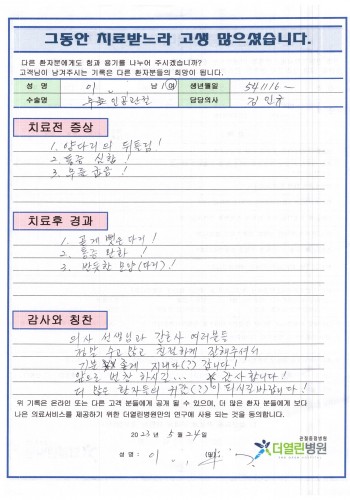 그동안 치료받느라 고생 많으셨습니다.
다른 환자분에게도 힘과 용기를 나누어 주시겠습니까?
고객님이 남겨주시는 기록은 다른 환자분들의 희망이 됩니다.
성 명 이 남 / 여 생년월일 541116 -
수술명 무릎 인공관절 담당의사 김민규
치료전 증상
1. 양다리의 뒤틀림!
2. 통증 심함!
3. 무릎 굽음!
치료후 경과
1. 곧게 뻗은 다리!
2. 통증 완화!
3. 반듯한 모양(다리)!
감사와 칭찬
의사 선생님과 간호사 여러분들
정말 수고 많고 친절하게 잘해주셔서
기분 좋게 지내다 (?) 갑니다!
앞으로 번창 하시길... 감사합니다!
더 많은 환자들의 귀감(?)이 되시길 바랍니다!
위 기록은 온라인 또는 다른 고객 분들에게 공개 될 수 있으며, 더 많은 환자 분들에게 보다
나은 의료서비스를 제공하기 위한 더열린병원만의 연구에 사용 되는 것을 동의합니다.
2023 년 5 월 24 일
관절중점병원
더열린병원
성 명 : 이